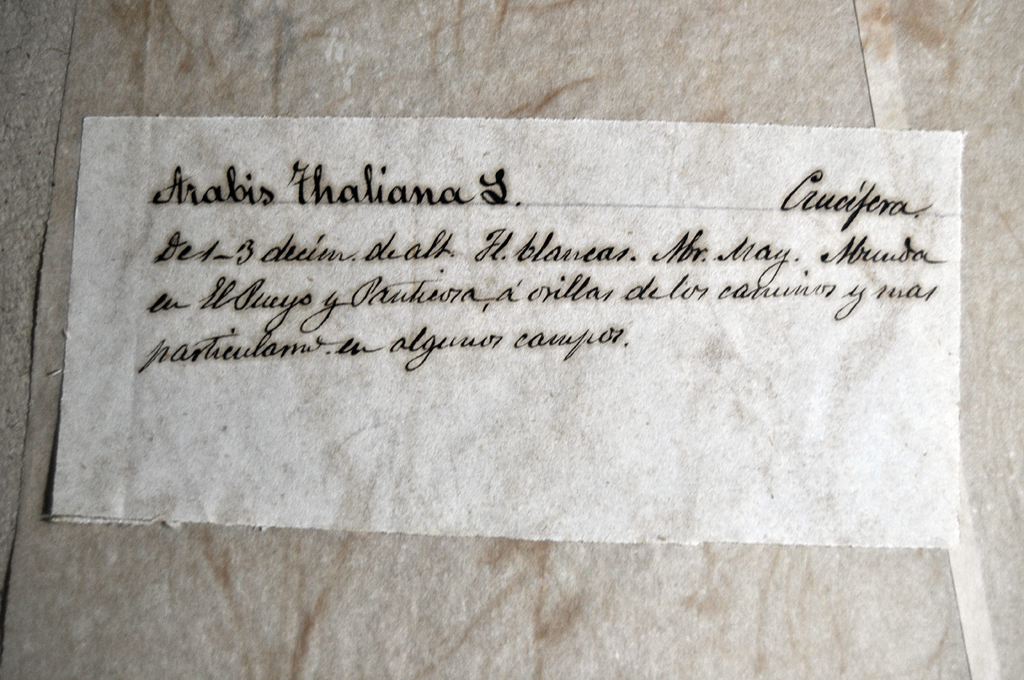 Arabis Thaliana L. Crucífera.
De 1-3 decím. de alt. Fl. blancas. Abr. May. Abunda
en El Pueyo y Panticosa, á orillas de los caminos y mas
particularmte. en algunos campos.